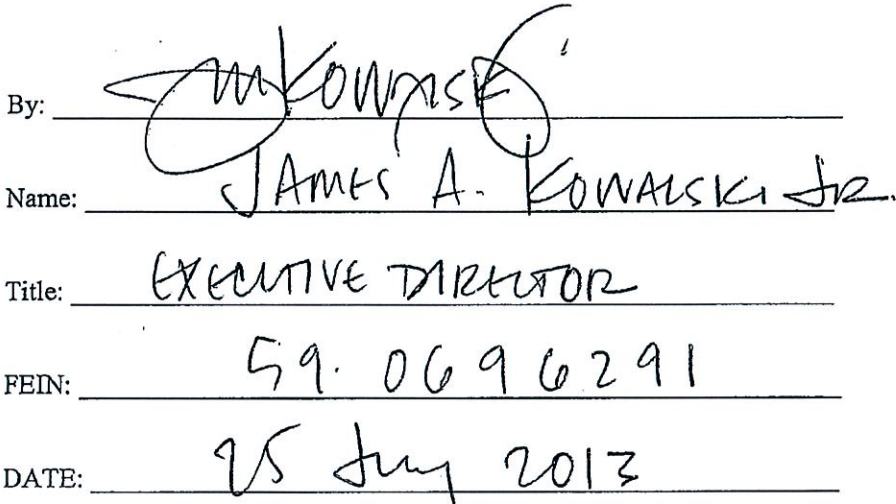 By: JMKOWALSKI
Name: JAMES A. KOWALSKI JR.
Title: EXECUTIVE DIRECTOR
FEIN: 59. 0696291
DATE: 25 2013